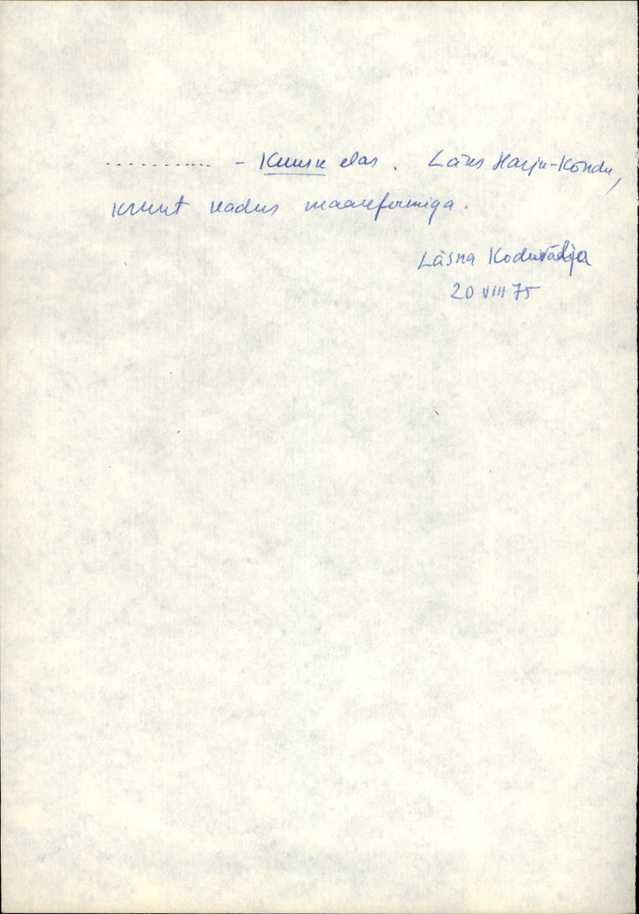 ........... - Kuusk elas. Läks Harju-Kõndu,
krunt kadus maareformiga.
Läsna Koduvälja
20 VIII 75